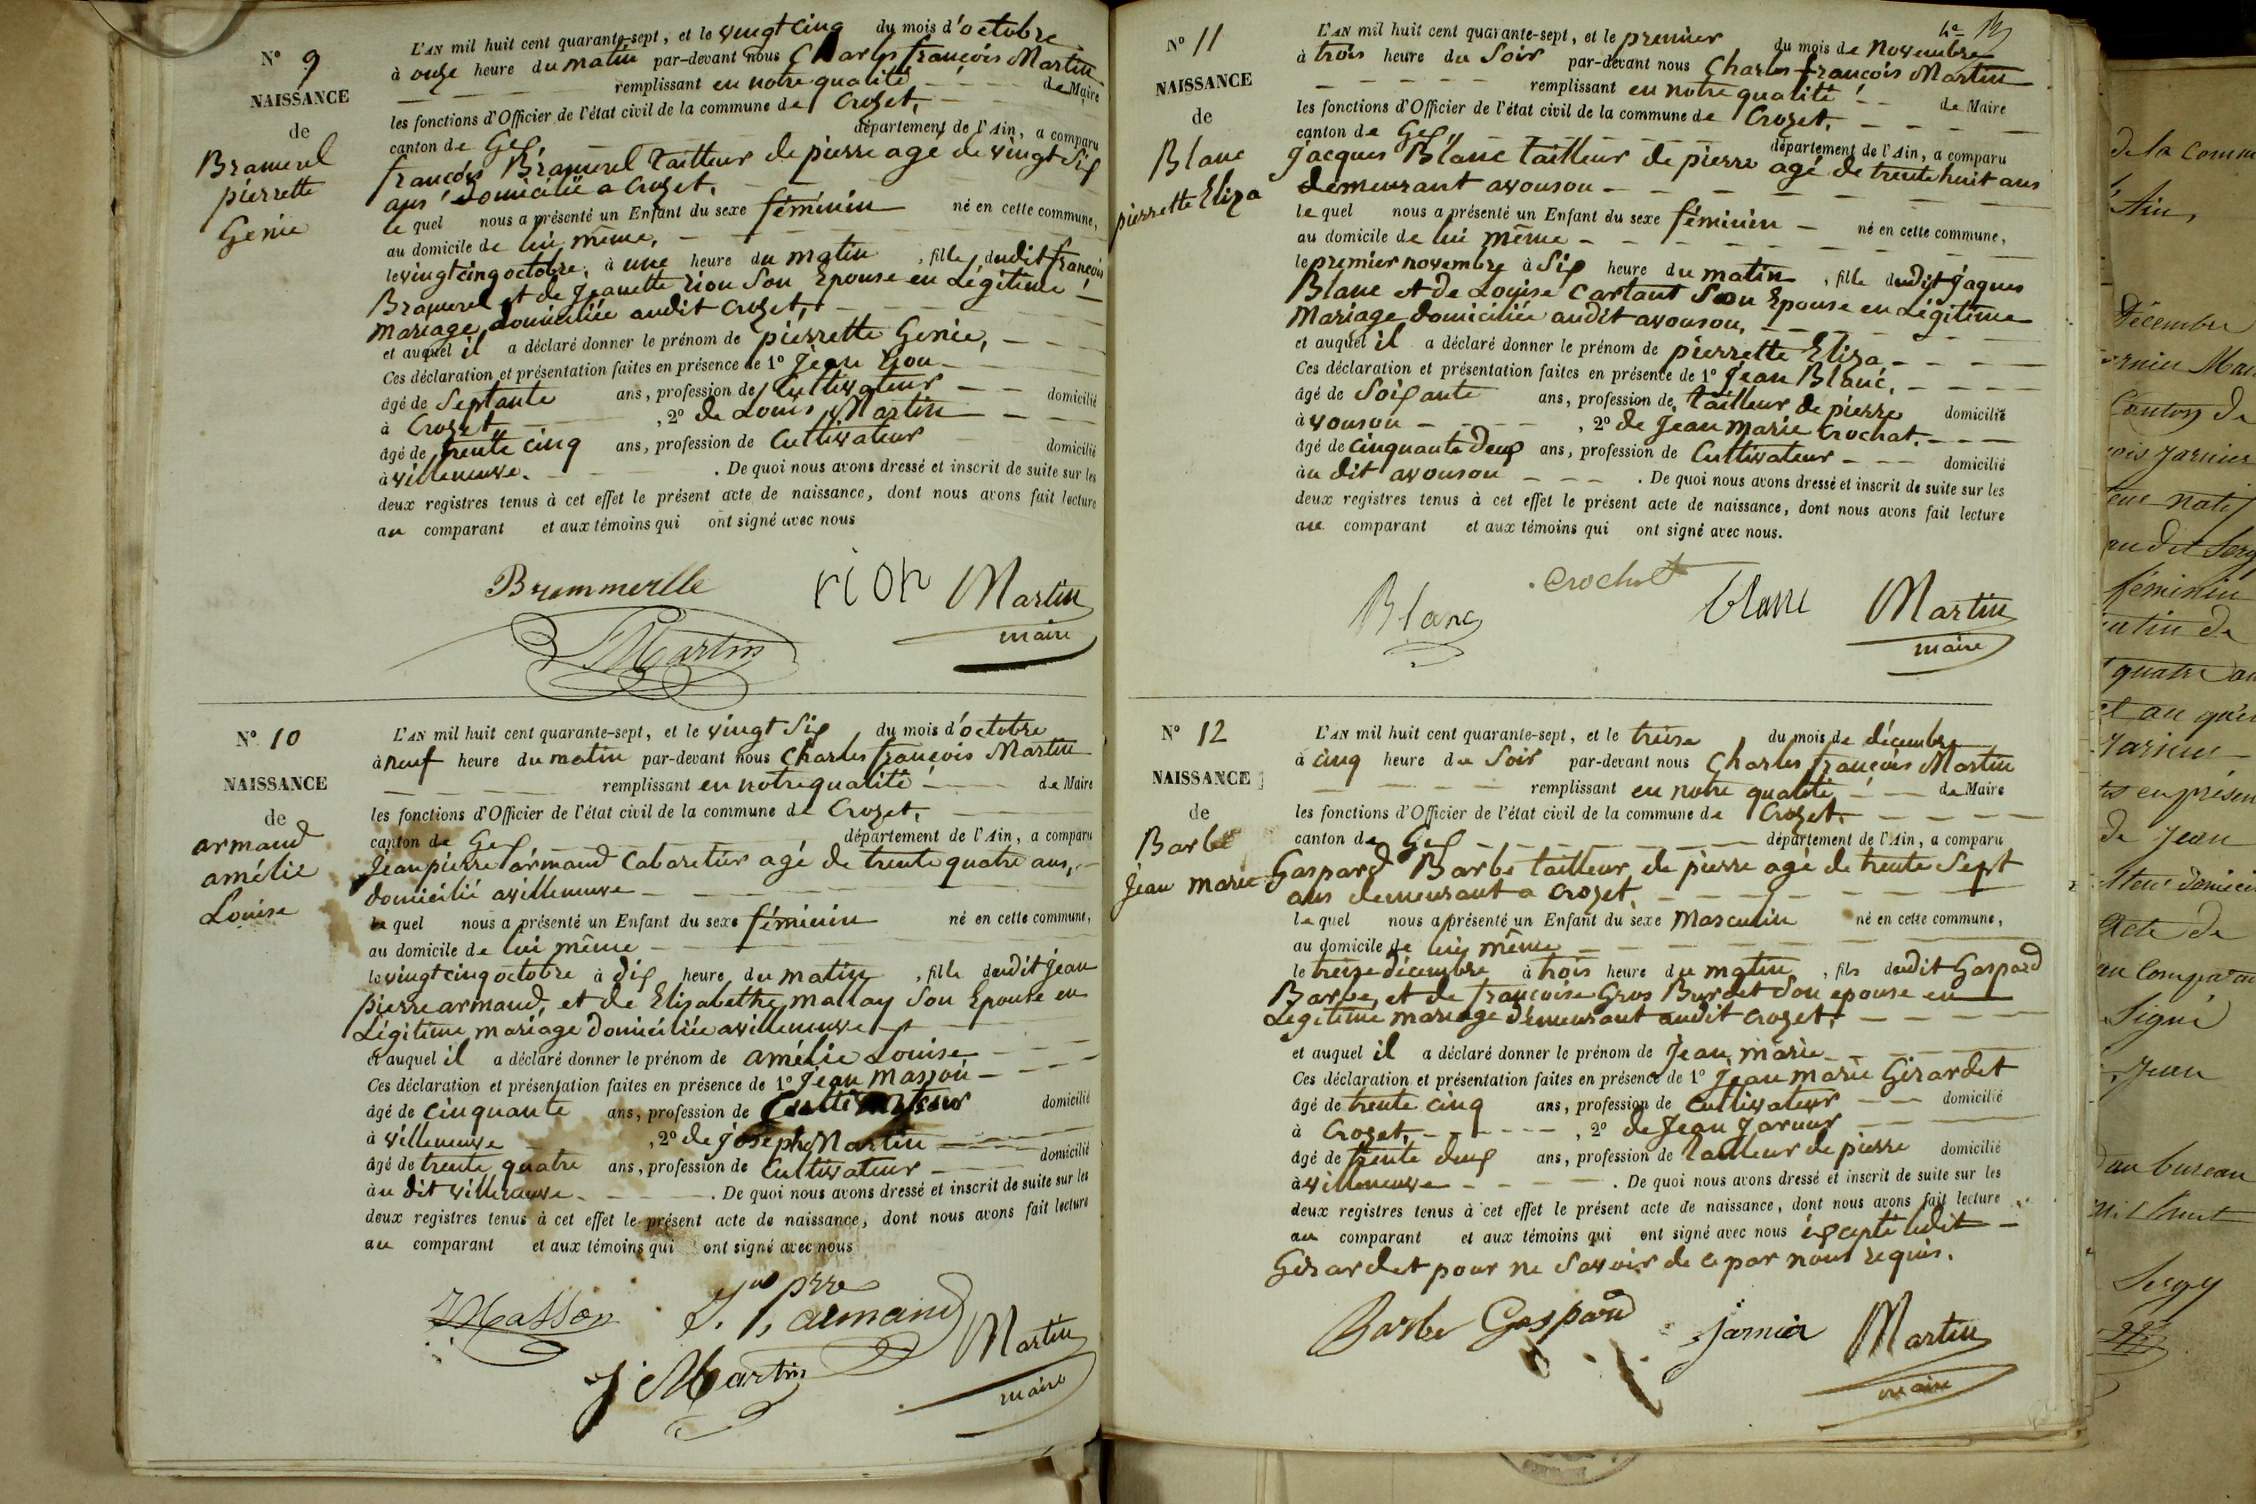 N° 9
NAISSANCE
de
Bramerel
pierrette
Genie
L'AN mil huit cent quarante-sept, et le vingt cinq du mois d'octobre
à onze heure du matin par-devant nous Charles françois Martin
remplissant en notre qualité de Maire
les fonctions d'Officier de l'état civil de la commune de Crozet,
canton de Gex, département de l'Ain, a comparu
françois Bramerel tailleur de pierre agé de vingt six
ans domicilié a Crozet,
le quel nous a présenté un Enfant du sexe féminin né en cette commune,
au domicile de lui même,
le vingt cinq octobre, à une heure du matin, fille dudit françois
Bramerel et de Jeanette rion Son Epouse en Légitime
mariage domiciliée audit Crozet,
et auquel il a déclaré donner le prénom de pierrette Genie,
Ces déclaration et présentation faites en présence de 1° Jean rion
âgé de Septante ans, profession de Cultivateur domicilié
à Crozet, 2° de Louis Martin
âgé de trente cinq ans, profession de Cultivateur domicilié
à villeneuve. De quoi nous avons dressé et inscrit de suite sur les
deux registres tenus à cet effet le présent acte de naissance, dont nous avons fait lecture
au comparant et aux témoins qui ont signé avec nous
Brammerelle rion Martin
maire
Martin
N° 10
NAISSANCE
de
armand
amélie
Louise
L'AN mil huit cent quarante-sept, et le vingt Six du mois d'octobre
à neuf heure du matin par-devant nous Charles françois Martin
remplissant en notre qualité de Maire
les fonctions d'Officier de l'état civil de la commune de Crozet,
canton de Gex département de l'Ain, a comparu
Jean pierre armand Cabaretier agé de trente quatre ans,
domicilié a villeneuve
le quel nous a présenté un Enfant du sexe féminin né en cette commune,
au domicile de lui même
le vingt cinq octobre à dix heure du matin, fille dudit Jean
pierre armand, et de Elisabethe mallay Son Epouse en
Légitime mariage domiciliée a villeneuve
et auquel il a déclaré donner le prénom de amélie Louise
Ces déclaration et présentation faites en présence de 1° Jean Masson
âgé de cinquante ans, profession de Cultivateur domicilié
à villeneuve, 2° de Joseph Martin
âgé de trente quatre ans, profession de Cultivateur domicilié
à u dit villeneuve. De quoi nous avons dressé et inscrit de suite sur les
deux registres tenus à cet effet le présent acte de naissance, dont nous avons fait lecture
au comparant et aux témoins qui ont signé avec nous
Masson J. prre armand Martin
J Martin maire
N° 11
NAISSANCE
de
Blanc
pierrette Eliza
L'AN mil huit cent quarante-sept, et le premier du mois de Novembre
à trois heure du Soir par-devant nous Charles françois Martin
remplissant en notre qualité de Maire
les fonctions d'Officier de l'état civil de la commune de Crozet,
canton de Gex, département de l'Ain, a comparu
Jacques Blanc tailleur de pierre agé de trente huit ans
demeurant avouson
le quel nous a présenté un Enfant du sexe féminin né en cette commune,
au domicile de lui même
le premier novembre à Six heure du matin, fille dudit Jaques
Blanc et de Louise Cartant Son Epouse en Légitime
Mariage domiciliée audit avouson,
et auquel il a déclaré donner le prénom de pierrette Eliza
Ces déclaration et présentation faites en présence de 1° Jean Blanc,
âgé de Soixante ans, profession de tailleur de pierre domicilié
à vouson, 2° de Jean marie Crochat,
âgé de cinquante deux ans, profession de Cultivateur domicilié
à u dit avouson. De quoi nous avons dressé et inscrit de suite sur les
deux registres tenus à cet effet le présent acte de naissance, dont nous avons fait lecture
au comparant et aux témoins qui ont signé avec nous.
Blanc Crochat blanc Martin
maire
N° 12
NAISSANCE
de
Barbe
Jean marie
L'AN mil huit cent quarante-sept, et le treize du mois de décembre
à cinq heure du Soir par-devant nous Charles françois Martin
remplissant en notre qualité de Maire
les fonctions d'Officier de l'état civil de la commune de Crozet.
canton de Gex département de l'Ain, a comparu
Gaspard Barbe tailleur de pierre agé de trente Sept
ans demeurant a Crozet,
le quel nous a présenté un Enfant du sexe Masculin né en cette commune,
au domicile de lui même
le treize décembre à trois heure du matin, fils dudit Gaspard
Barbe, et de françoise Gros Burdet Son epouse en
Légitime mariage demeurant audit Crozet,
et auquel il a déclaré donner le prénom de Jean marie
Ces déclaration et présentation faites en présence de 1° Jean marie Girardet
âgé de trente cinq ans, profession de Cultivateur domicilié
à Crozet, 2° de Jean Jarnier
âgé de trente deux ans, profession de tailleur de pierre domicilié
à villeneuve. De quoi nous avons dressé et inscrit de suite sur les
deux registres tenus à cet effet le présent acte de naissance, dont nous avons fait lecture
au comparant et aux témoins qui ont signé avec nous éxcepté ledit
Girardet pour ne Savoir de ce par nous requis.
Barbe Gaspard jarnier Martin
maire
de la comm
Ain,
Décembre
Canton de
natif
féminin
quatre
Jarnier
en présen
de Jean
acte de
Signé
Jean
au bureau
Sergy